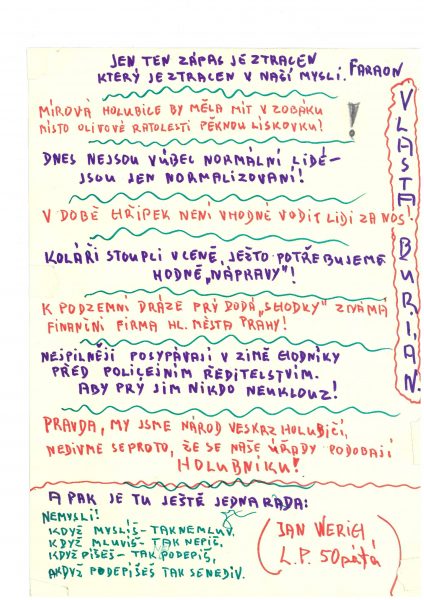 JEN TEN ZÁPAS JE ZTRACEN
KTERÝ JE ZTRACEN V NAŠÍ MYSLI. FARAON
MÍROVÁ HOLUBICE BY MĚLA MÍT V ZOBÁKU
MÍSTO OLIVOVÉ RATOLESTI PĚKNOU LÍSKOVKU!
DNES NEJSOU VŮBEC NORMÁLNÍ LIDÉ-
JSOU JEN NORMALIZOVANÍ!
V DOBĚ CHŘIPEK NENÍ VHODNÉ VODIT LIDI ZA NOS!
KOLÁŘI STOUPLI V CENĚ, JEŠTO POTŘEBUJEME
HODNĚ „NÁPRAVY"!
K PODZEMNÍ DRÁZE PRÝ DODÁ „SCHODKY" ZNÁMÁ
FINANČNÍ FIRMA HL. MĚSTA PRAHY!
NEJPILNĚJI POSYPÁVAJÍ V ZIMĚ CHODNÍKY
PŘED POLICEJNÍM ŘEDITELSTVÍM.
ABY PRÝ JIM NIKDO NEUKLOUZ!
PRAVDA, MY JSME NÁROD VESKRZ HOLUBIČÍ,
NEDIVME SE PROTO, ŽE SE NAŠE ÚŘADY PODOBAJÍ
HOLUBNÍKU!
VLASTA BURIAN.
A PAK JE TU JEŠTĚ JEDNA RADA:
NEMYSLI!
KDYŽ MYSLÍŠ - TAK NEMLUV,
KDYŽ MLUVÍŠ - TAK NEPIŠ,
KDYŽ PÍŠEŠ - TAK PODEPIŠ,
A KDYŽ PODEPÍŠEŠ TAK SE NEDIV.
(JAN WERICH
L.P. 50pátá)